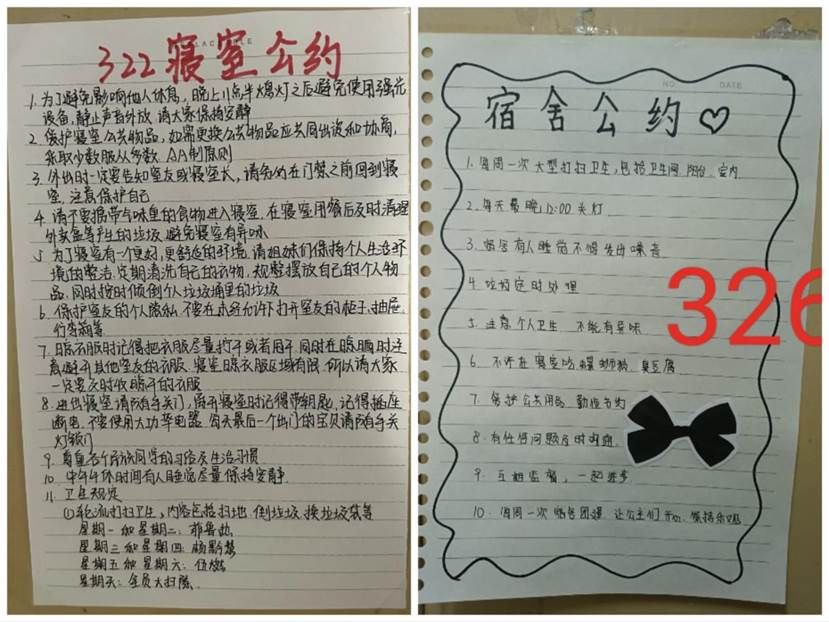 322寝室公约
1.为了避免影响他人休息，晚上11点半熄灯之后避免使用强光
设备，静止声音外放，请大家保持安静
2.爱护寝室公共物品，如需更换公共物品应共同出资和协商，
采取少数服从多数，AA制原则
3.外出时一定要告知室友或寝室长，请务必在门禁之前回到寝
室，注意保护自己
4.请不要携带气味重的食物进入寝室，在寝室用餐后及时清理
外卖盒等产生的垃圾，避免寝室有异味
5.为了寝室有一个更好，更舒适的环境，请姐妹们保持个人生活环
境的整洁，定期清洗自己的衣物，规整摆放自己的个人物
品，同时按时倾倒个人垃圾桶里的垃圾
6.保护室友的个人隐私，不要在未经允许下打开室友的柜子，抽屉，
行李箱等
7.晾衣服时记得把衣服尽量拧干或者甩干，同时在晾晒时注
意避开其他室友的衣服，寝室晾衣服区域有限，所以请大家
一定要及时收晾干的衣服
8.进出寝室请随手关门，离开寝室时记得带钥匙，记得插座
断电，不要使用大功率电器，每天最后一个出门的宝贝请随手关
灯锁门
9.尊重各个民族同学的习俗及生活习惯
10.中午午休时间有人睡觉尽量保持安静
11.卫生规定
①轮流打扫卫生，内容包括扫地，倒垃圾，换垃圾袋等
星期一和星期二：
星期三和星期四：杨黔梦
星期五和星期六：伍燃
星期天：全员大扫除
NO.
DATE
宿舍公约♡
1.每周一次大型打扫卫生，包括卫生间、阳台、室内
2.每天最晚12:00关灯
3.宿舍有人睡觉不得发出噪音
4.垃圾定时处理
5.注意个人卫生 不能有异味
6.不许在寝室吃螺蛳粉、臭豆腐
7.爱护公共用品，勤俭节约
8.有任何问题及时沟通
9.互相监督，一起进步
10.每周一次宿舍团建，让公主们开心、保持乐观
326